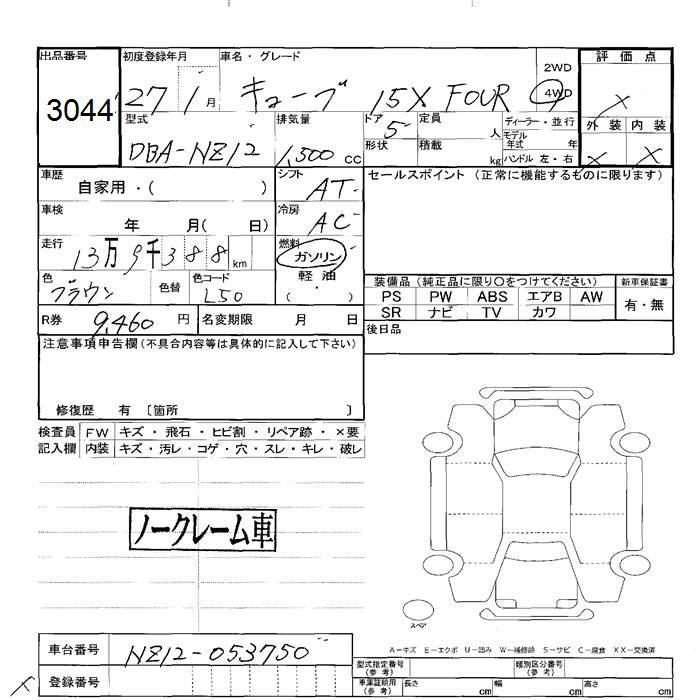 出品番号 初度登録年月 車名・グレード 2WD 評価点
3044 27 1月 キューブ 15X FOUR 4WD ×
型式 排気量 ドア 定員 ディーラー・並行 外装 内装
DBA-NZ12 1,500cc 5 人 モデル年式 年 × ×
形状 積載 kg ハンドル 左・右
車歴 シフト セールスポイント (正常に機能するものに限ります)
自家用・( ) AT
車検 冷房
年 月( 日) AC
走行 燃料
13万9千388km ガソリン
色 色替 色コード 軽油
ブラウン L50 ( )
装備品 (純正品に限り○をつけてください) 新車保証書
PS PW ABS エアB AW 有・無
SR ナビ TV カワ
R券 9,460円 名変期限 月 日 後日品
注意事項申告欄(不具合内容等は具体的に記入して下さい)
修復歴 有 〔箇所 〕
検査員 FW キズ・飛石・ヒビ割・リペア跡・×要
記入欄 内装 キズ・汚レ・コゲ・穴・スレ・キレ・破レ
ノークレーム車
スペア
A−キズ E−エクボ U−凹み W−補修跡 S−サビ C−腐食 XX−交換済
車台番号 NZ12-053750
型式指定番号(参考) 類別区分番号(参考)
× 登録番号
車庫証明用(参考) 長さ cm 幅 cm 高さ cm